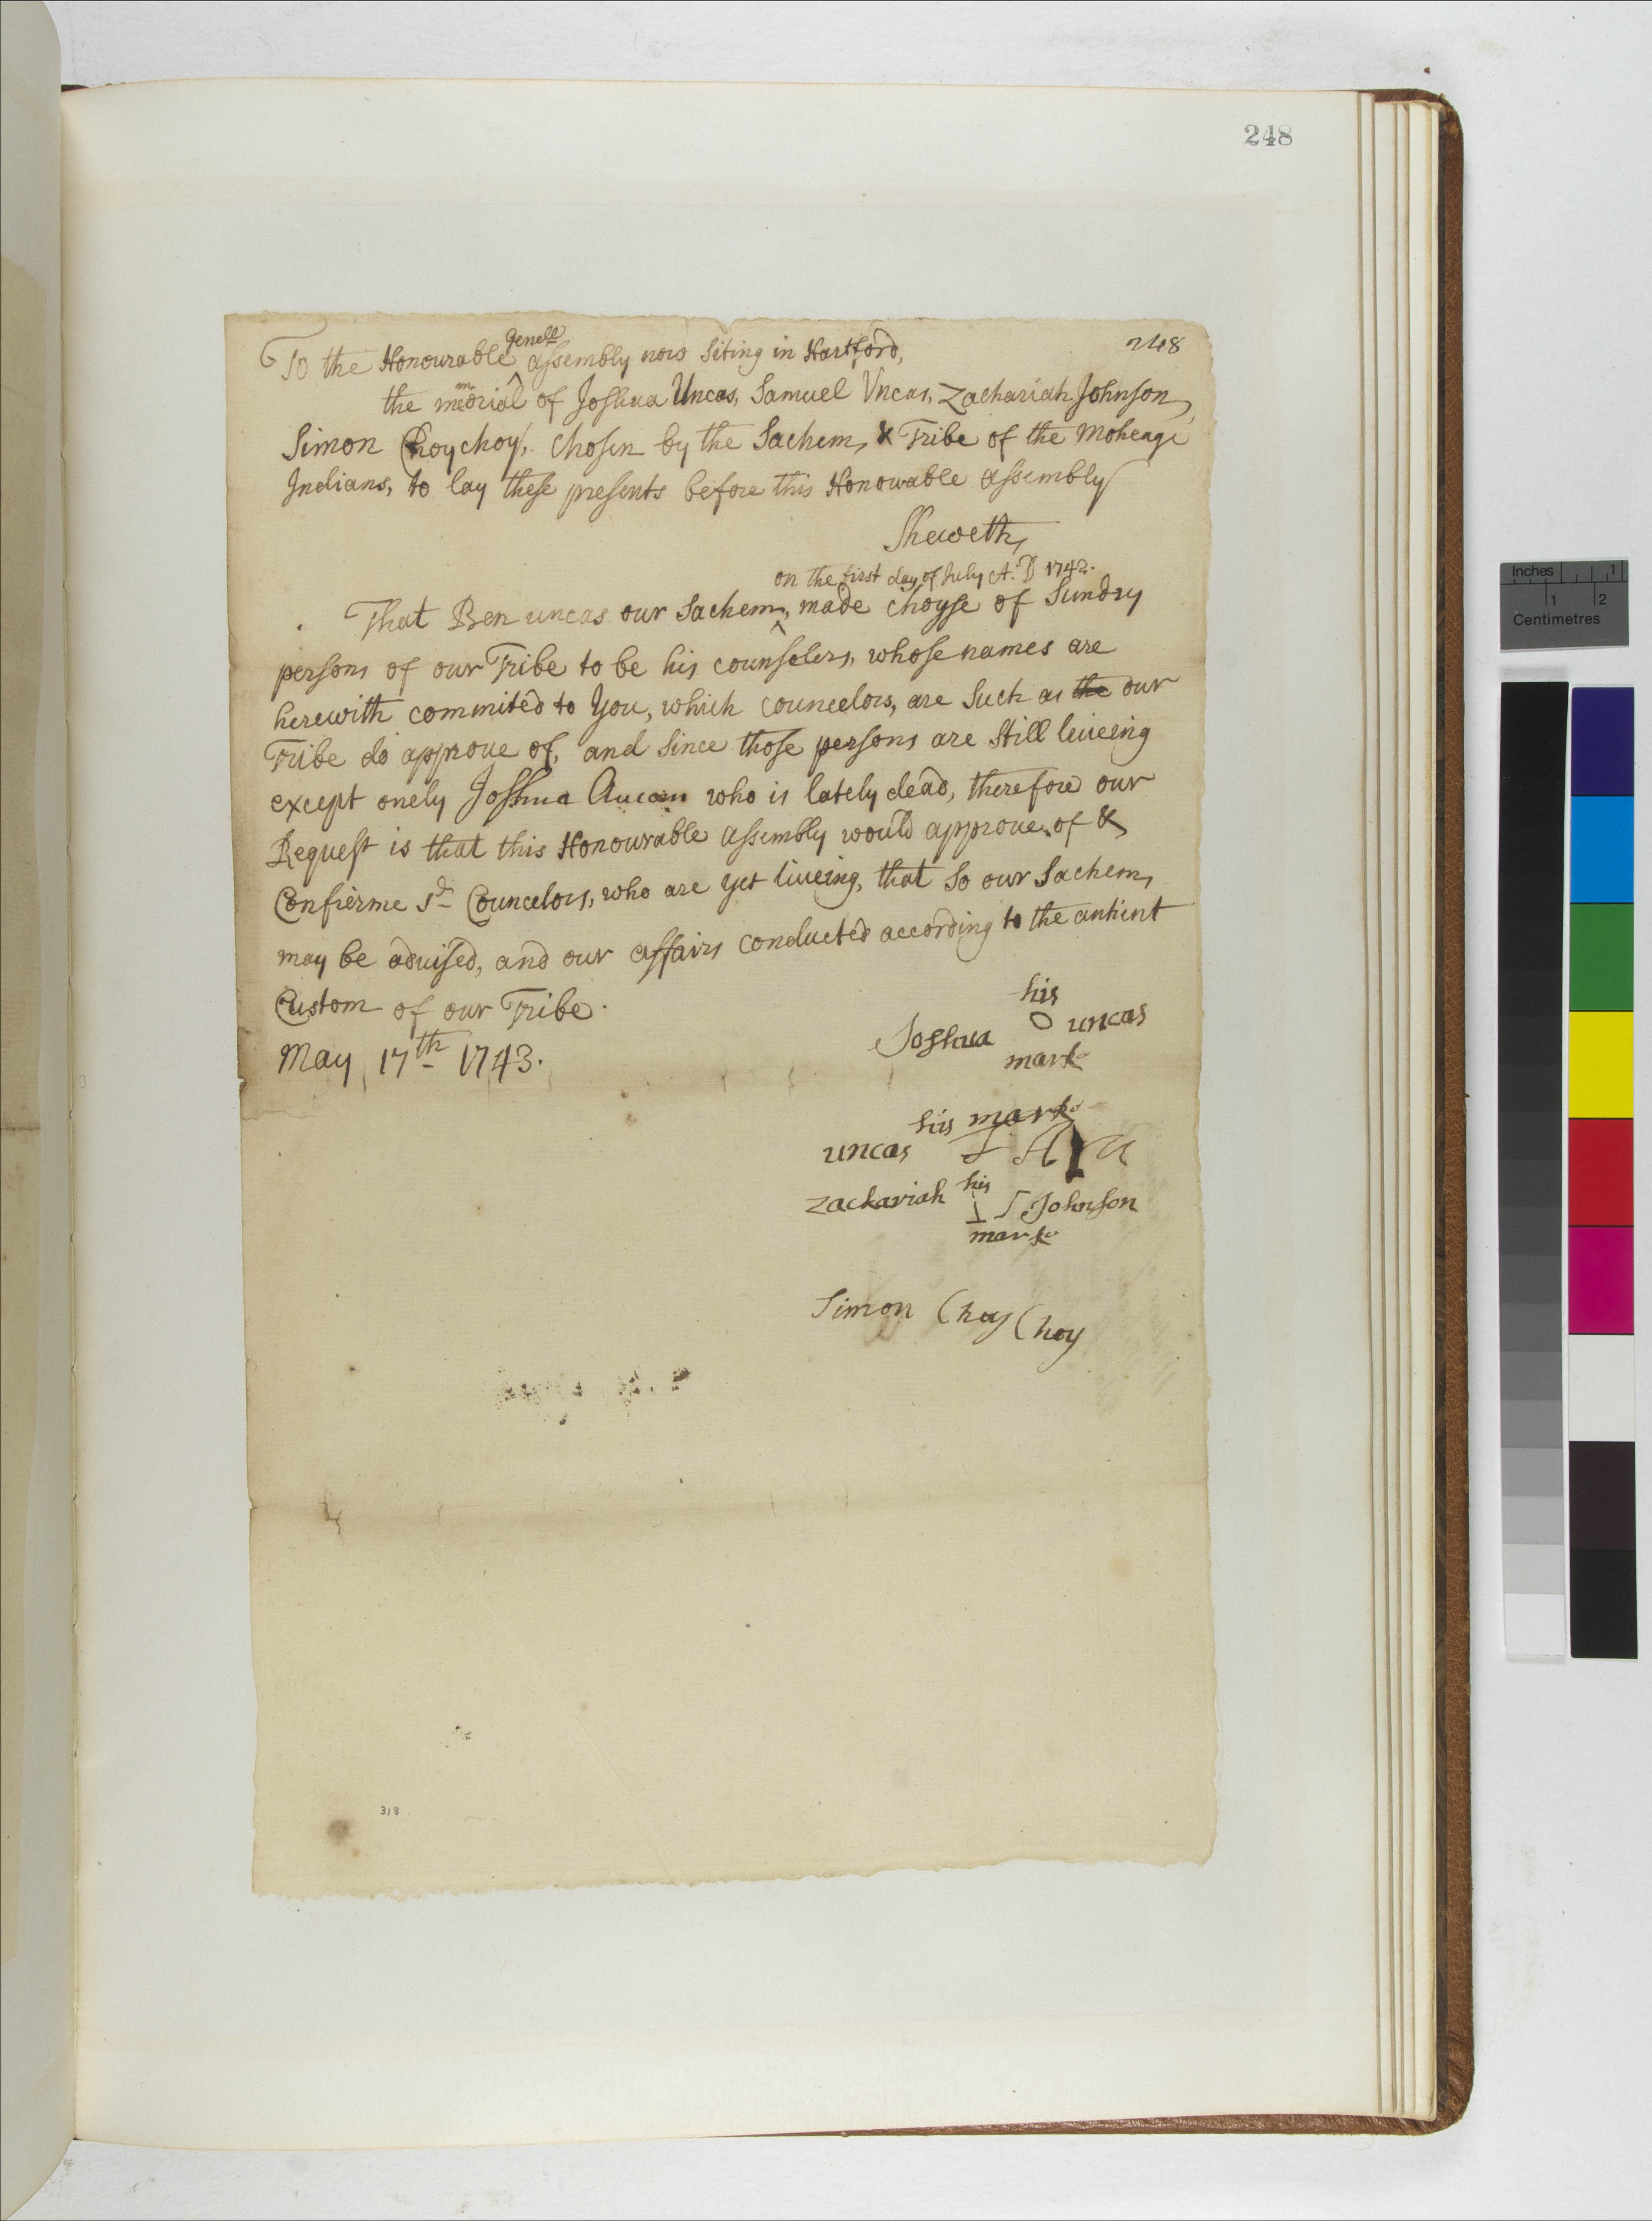 248
248
To the Honourable Genell assembly now Siting in Hartford,
the memorial of Joshua Uncas, Samuel Vncas, Zachariah Johnson,
Simon Choychoy, Chosen by the Sachem, & Tribe of the Moheage
Indians, to lay these presents before this Honourable assembly
Sheweth,
on the first day of July A. D 1742.
That Ben uncas our Sachem, made choyse of Sundry
persons of our Tribe to be his counselers, whose names are
herewith commited to You, which councelors, are Such as the our
Tribe do approue of, and Since those persons are Still liueing
except onely Joshua who is lately dead, therefore our
Request is that this Honourable assembly would approue of &
Confierme sd Councelors, who are yet liueing, that So our Sachem,
may be aduised, and our affairs conducted according to the antient
Custom of our Tribe.
May 17th 1743.
his
Joshua O uncas
mark
his mark
uncas
his
Zachariah Johnson
mark
Simon Choy Choy
318
Inches 1
1 2
Centimetres